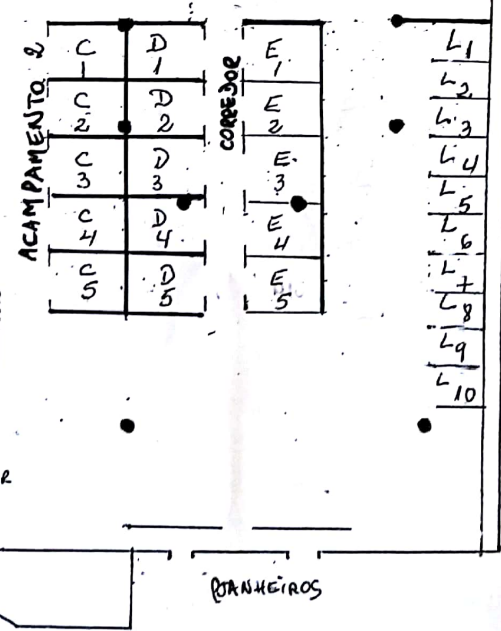 ACAMPAMENTO 2
C 1
D 1
C 2
D 2
C 3
D 3
C 4
D 4
C 5
D 5
CORREDOR
E 1
E 2
E 3
E 4
E 5
L1
L2
L3
L4
L5
L6
L7
L8
L9
L10
R
BANHEIROS